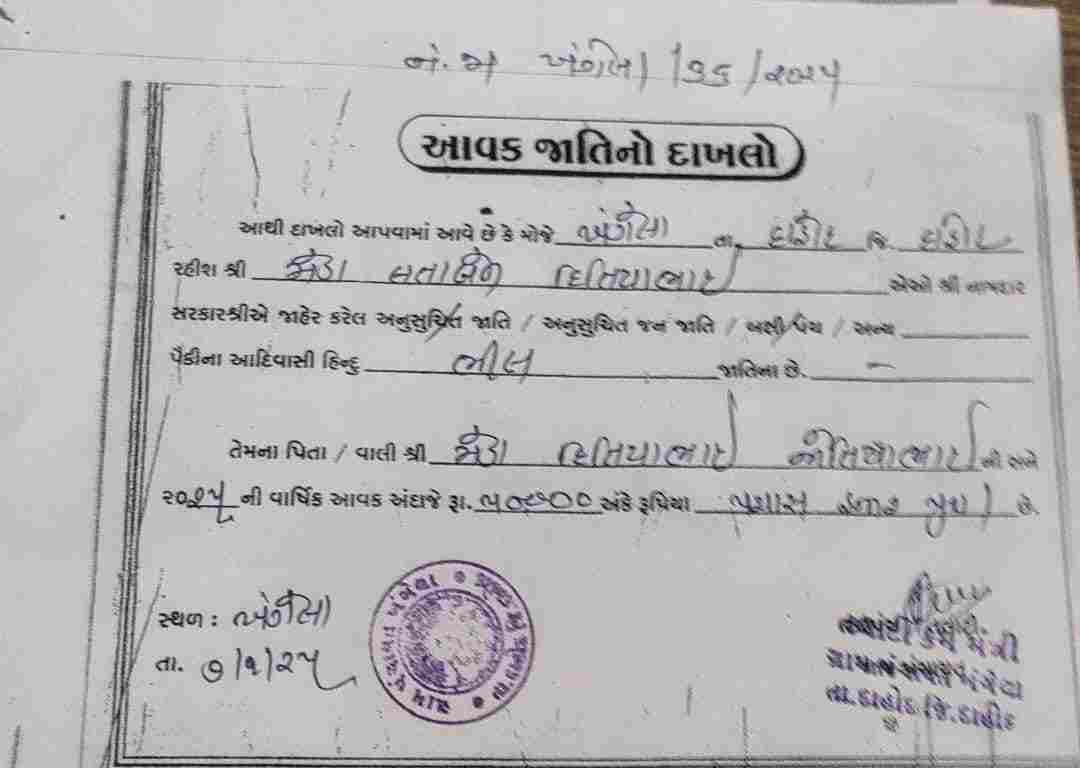 નં. જા ખંગેલા / ૧૬ / ૨૦૨૫
આવક જાતિનો દાખલો
આથી દાખલો આપવામાં આવે છે કે મોજે ખંગેલા તા. દાહોદ જિ. દાહોદ
રહીશ શ્રી મેડા લતાબેન દિતિયાભાઈ એઓ શ્રી નામદાર
સરકારશ્રીએ જાહેર કરેલ અનુસુચિત જાતિ / અનુસુચિત જન જાતિ / બક્ષી પંચ / અન્ય
પૈકીના આદિવાસી હિન્દુ ભીલ જાતિના છે. -
તેમના પિતા / વાલી શ્રી મેડા દિતિયાભાઈ જોતિયાભાઈ ની અને
૨૦૨૫ ની વાર્ષિક આવક અંદાજે રૂા. ૫૦૦૦૦ અંકે રૂપિયા પચાસ હજાર પુરા છે.
સ્થળ : ખંગેલા
તા. ૭/૧/૨૫
ગ્રામ પંચાયત ખંગેલા
તલાટી કમ મંત્રી
ગ્રામ પંચાયત ખંગેલા
તા.દાહોદ જિ.દાહોદ